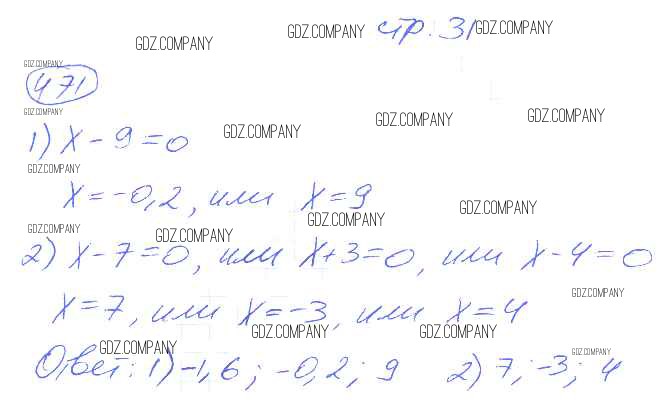 GDZ.COMPANY GDZ.COMPANY стр. 31 GDZ.COMPANY
GDZ.COMPANY
471
GDZ.COMPANY GDZ.COMPANY GDZ.COMPANY GDZ.COMPANY
1) x - 9 = 0
GDZ.COMPANY
x = -0,2, или x = 9
GDZ.COMPANY GDZ.COMPANY
GDZ.COMPANY GDZ.COMPANY
2) x - 7 = 0, или x + 3 = 0, или x - 4 = 0
GDZ.COMPANY
x = 7, или x = -3, или x = 4
GDZ.COMPANY GDZ.COMPANY
GDZ.COMPANY GDZ.COMPANY
Ответ: 1) -1,6; -0,2; 9 2) 7; -3; 4